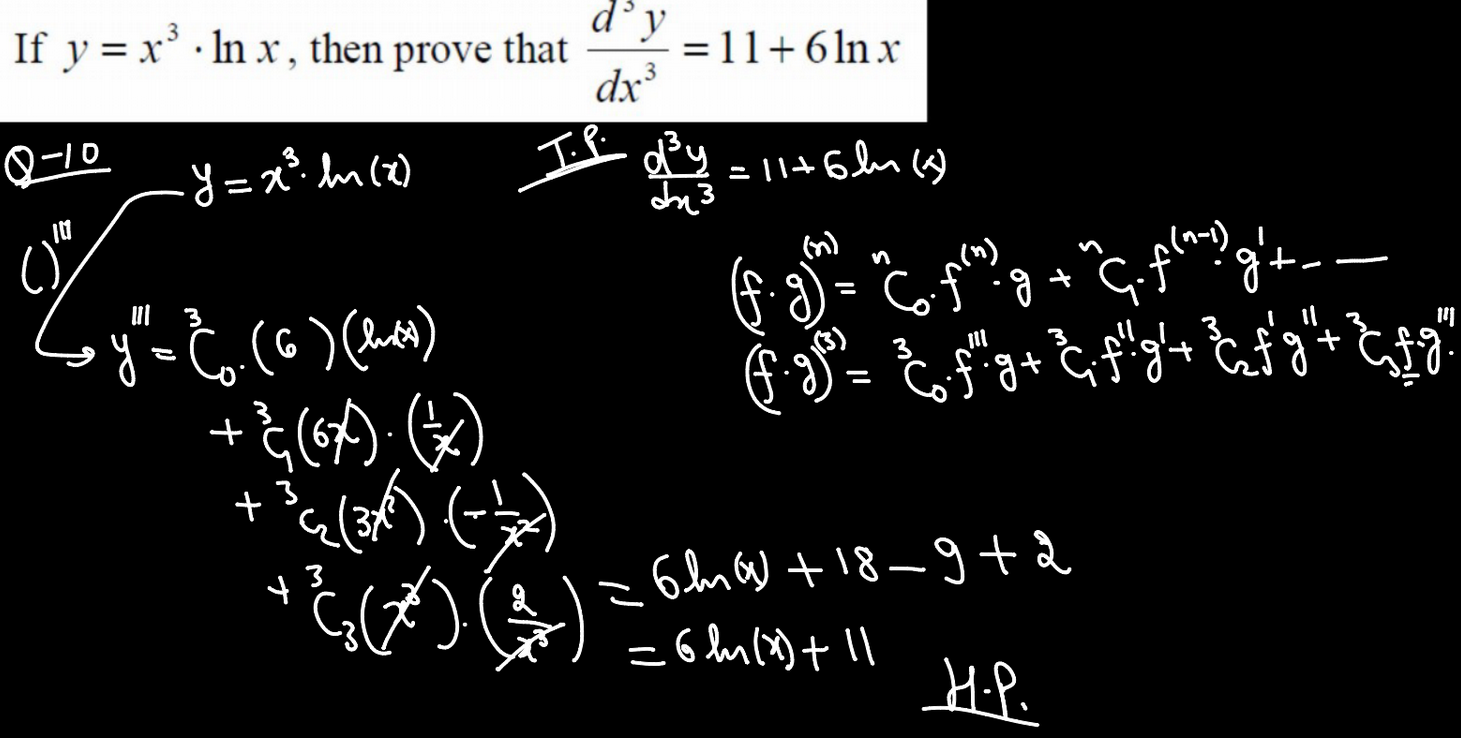 If y = x³ · ln x, then prove that d³y/dx³ = 11 + 6 ln x
Q-10
y = x³ · ln(x)
T.P. d³y/dx³ = 11 + 6 ln(x)
( )'''
(f·g)⁽ⁿ⁾ = ⁿC₀·f⁽ⁿ⁾·g + ⁿC₁·f⁽ⁿ⁻¹⁾·g' + - —
(f·g)⁽³⁾ = ³C₀·f'''·g + ³C₁·f''·g' + ³C₂f'g'' + ³C₃f·g'''.
y''' = ³C₀·(6)(ln(x))
+ ³C₁(6x)·(1/x)
+ ³C₂(3x²)·(-1/x²)
+ ³C₃(x³)·(2/x³) = 6ln(x) + 18 - 9 + 2
= 6 ln(x) + 11
H.P.